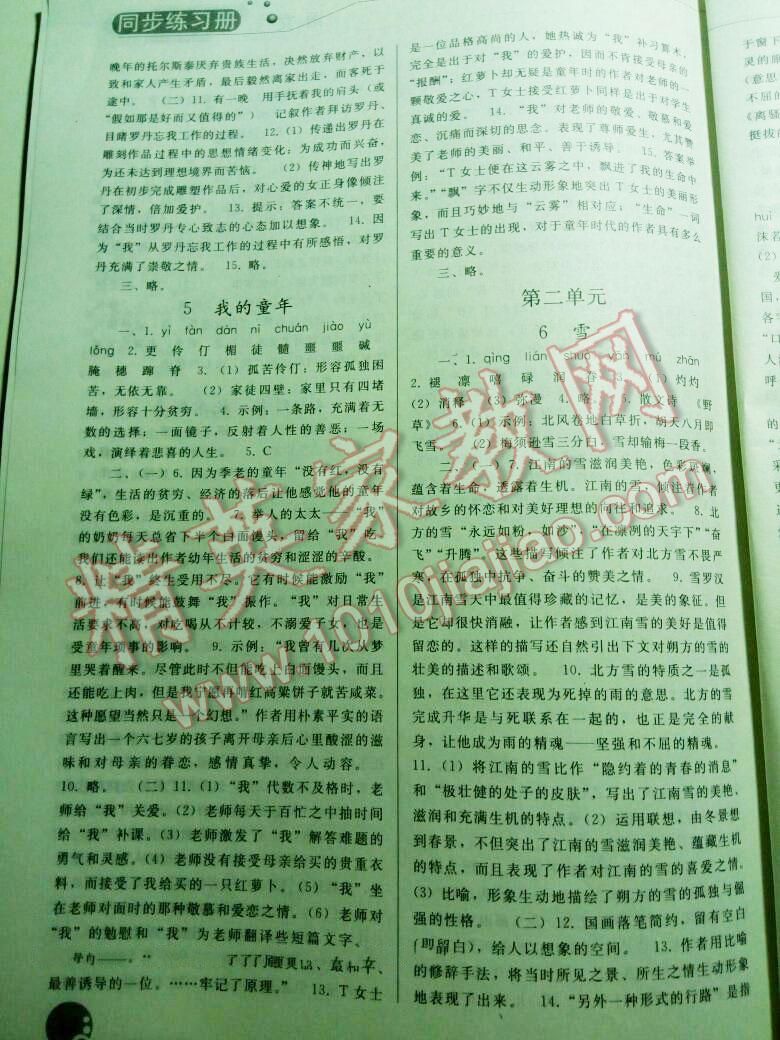 同步练习册
晚年的托尔斯泰厌弃贵族生活，决然放弃财产，以
致和家人产生矛盾，最后毅然离家出走，而客死于
途中。 (二) 11. 有一晚 用手抚着我的肩头（或
“假如那是好而又值得的”） 记叙作者拜访罗丹、
目睹罗丹忘我工作的过程。 12. (1) 传递出罗丹在
雕刻作品过程中的思想情绪变化：为成功而兴奋，
为还未达到理想境界而苦恼。 (2) 传神地写出罗
丹在初步完成雕塑作品后，对心爱的女正身像倾注
了深情，倍加爱护。 13. 提示：答案不统一，要
结合当时罗丹专心致志的心态加以想象。 14. 因
为“我”从罗丹忘我工作的过程中有所感悟，对罗
丹充满了崇敬之情。 15. 略。
三、略。
5 我的童年
一、1. yì fàn dàn nì chuán jiào yù
lǒng 2. 更 伶 仃 楣 徒 髓 噩 噩 碱
腌 穗 蹿 脊 3. (1) 孤苦伶仃：形容孤独困
苦，无依无靠。 (2) 家徒四壁：家里只有四堵
墙，形容十分贫穷。 4. 示例：一条路，充满着无
数的选择；一面镜子，反射着人性的善恶；一场
戏，演绎着悲喜的人生。 5. C
二、(一) 6. 因为季老的童年“没有红，没有
绿”，生活的贫穷、经济的落后让他感觉他的童年
没有色彩，是沉重的。 7. 举人的太太——“我”
的奶奶每天总省下半个白面馒头，留给“我”吃，
我们还能读出作者幼年生活的贫穷和涩涩的辛酸。
8. 让“我”终生受用不尽。它有时候能激励“我”
前进，有时候能鼓舞“我”振作。“我”对日常生
活要求不高，对吃喝从不计较，不溺爱子女，也是
受童年琐事的影响。 9. 示例：“我曾有几次从梦
里哭着醒来。尽管此时不但能吃上白面馒头，而且
还能吃上肉，但是我宁愿再啃红高粱饼子就苦咸菜。
这种愿望当然只是一个幻想。”作者用朴素平实的语
言写出一个六七岁的孩子离开母亲后心里酸涩的滋
味和对母亲的眷恋，感情真挚，令人动容。
10. 略。 (二) 11. (1)“我”代数不及格时，老
师给“我”关爱。(2) 老师每天于百忙之中抽时间
给“我”补课。(3) 老师激发了“我”解答难题的
勇气和灵感。(4) 老师没有接受母亲给买的贵重衣
料，而接受了我给买的一只红萝卜。(5)“我”坐
在老师对面时的那种敬慕和爱恋之情。(6) 老师对
“我”的勉慰和“我”为老师翻译些短篇文字。
最善诱导的一位。……牢记了原理。” 13. T 女士
是一位品格高尚的人，她热诚为“我”补习算术，
完全是出于对“我”的爱护，因而不肯接受母亲的
“报酬”；红萝卜却无疑是童年时的作者对老师的一
颗敬爱之心，T 女士接受红萝卜同样是出于对学生
真诚的爱。 14. “我”对老师的敬爱、敬慕和爱
恋、沉痛而深切的思念。表现了尊师爱生，尤其赞
美了老师的美丽、和平、善于诱导。 15. 答案举
例：“T 女士便在这云雾之中，飘进了我的生命中
来。”“飘”字不仅生动形象地突出 T 女士的美丽形
象，而且巧妙地与“云雾”相对应；“生命”一词
写出 T 女士的出现，对于童年时代的作者具有多么
重要的意义。
三、略。
第二单元
6 雪
一、1. qìng liǎn shuò yàn mù zhān
2. 褪 凛 嘻 碌 润 脊 3. (1) 灼灼
(2) 消释 (3) 弥漫 4. 略 5. 散文诗 《野
草》 6. (1) 示例：北风卷地白草折，胡天八月即
飞雪。 (2) 梅须逊雪三分白，雪却输梅一段香。
二、(一) 7. 江南的雪滋润美艳，色彩斑斓，
蕴含着生命，透露着生机。江南的雪，倾注着作者
对故乡的怀恋和对美好理想的向往和追求。 8. 北
方的雪“永远如粉，如沙”，“在凛冽的天宇下”“奋
飞”“升腾”，这些描写倾注了作者对北方雪不畏严
寒，在孤独中抗争、奋斗的赞美之情。 9. 雪罗汉
是江南雪天中最值得珍藏的记忆，是美的象征。但
是它却很快消融，让作者感到江南雪美好但是值得
留恋的。这样的描写还自然引出下文对朔方的雪的
壮美的描述和歌颂。 10. 北方雪的特质之一是孤
独，在这里它还表现为死掉的雨的意思。北方的雪
完成升华是与死联系在一起的，也正是完全的献
身，让他成为雨的精魂——坚强和不屈的精魂。
11. (1) 将江南的雪比作“隐约着的青春的消息”
和“极壮健的处子的皮肤”，写出了江南雪的美艳、
滋润和充满生机的特点。(2) 运用联想，由冬景想
到春景，不但突出了江南雪滋润美艳、蕴藏生机的
特点，而且表现了作者对江南的雪的喜爱之情。
(3) 比喻，形象生动地描绘了朔方的雪的孤独与倔
强的性格。 (二) 12. 国画落笔简约，留有空白
（即留白），给人以想象的空间。 13. 作者用比喻
的修辞手法，将当时所见之景、所生之情生动形象
地表现了出来。 14. “另外一种形式的行路”是指
精英家教网
www.1010jiajiao.com